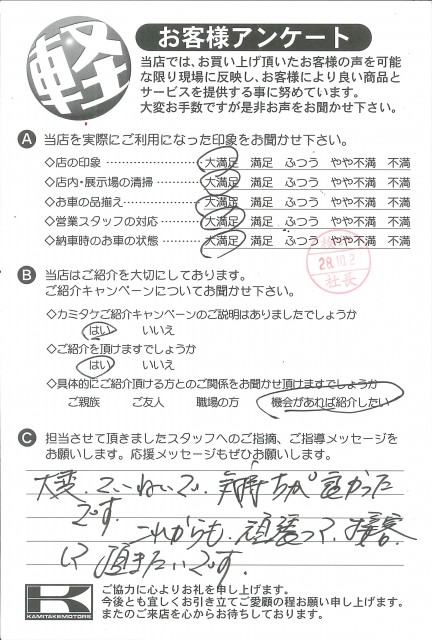 軽
お客様アンケート
当店では、お買い上げ頂いたお客様の声を可能
な限り現場に反映し、お客様により良い商品と
サービスを提供する事に努めています。
大変お手数ですが是非お声をお聞かせ下さい。
A 当店を実際にご利用になった印象をお聞かせ下さい。
◇店の印象 大満足 満足 ふつう やや不満 不満
◇店内・展示場の清掃 大満足 満足 ふつう やや不満 不満
◇お車の品揃え 大満足 満足 ふつう やや不満 不満
◇営業スタッフの対応 大満足 満足 ふつう やや不満 不満
◇納車時のお車の状態 大満足 満足 ふつう やや不満 不満
28.10.2
社長
B 当店はご紹介を大切にしております。
ご紹介キャンペーンについてお聞かせ下さい。
◇カミタケご紹介キャンペーンのご説明はありましたでしょうか
はい いいえ
◇ご紹介を頂けますでしょうか
はい いいえ
◇具体的にご紹介頂ける方とのご関係をお聞かせ頂けますでしょうか
ご親族 ご友人 職場の方 機会があれば紹介したい
C 担当させて頂きましたスタッフへのご指摘、ご指導メッセージを
お願いします。応援メッセージもぜひお願いします。
大変、ていねいで、気持ちが良かった
です。
これからも、頑張って、接客
して頂きたいです。
K
KAMITAKEMOTORS
ご協力に心よりお礼を申し上げます。
今後とも宜しくお引き立てご愛顧の程お願い申し上げます。
またのご来店を心からお待ちしております。